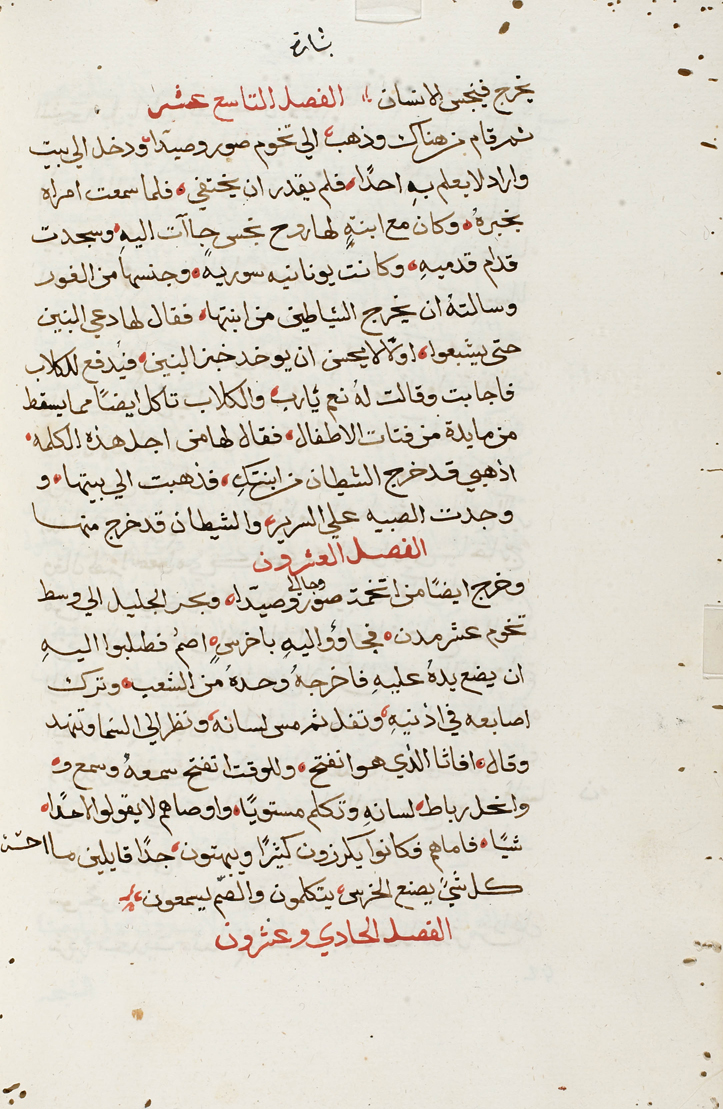 بشارة
يخرج فينجس الانسان الفصل التاسع عشر
ثم قام من هناك وذهب الي تخوم صور وصيدا ودخل الي بيت
واراد لا يعلم به احدًا فلم يقدر ان يختفي فلما سمعت امراه
بخبره وكان مع ابنةٍ لها روح نجس جاآت اليه وسجدت
قدام قدميه وكانت يونانيه سوريةً وجنسها من الغور
وسالته ان يخرج الشياطين من ابنتها فقال لها دعي البنين
حتى يشبعوا اولًا لا يحسن ان يوخد خبز البنين فيُدفع للكلاب
فاجابت وقالت لهُ نعم يَارب والكلاب تاكل ايضًا مما يسقط
من مايدة من فتات الاطفال فقال لها من اجل هذه الكلمه
اذهبي قد خرج الشيطان من ابنتكِ فذهبت الي بيتها و
وجدت الصبيه علي السرير والشيطان قد خرج منها
الفصل العشرون
وخرج ايضًا من اتخمة صور وجا الي وصيدا وبحر الجليل الي وسط
تخوم عشر مدن فجاووا اليهِ باخرسٍ اصمُ فطلبوا اليهِ
ان يضع يدهُ عليهِ فاخرجهُ وحدهُ من الشعب وترك
اصابعه في اذنيهِ وتفل ثم مس لسانه ونظر الي السما وتنهد
وقال افاثا الذي هو انفتح وللوقت انفتح سمعهُ وسمع و
وانحل رباط لسانهِ وتكلم مستويًا واوصاهم لا يقولوا لاحدًا
شيًا فاماهم فكانوا يكرزون كثيرًا ويبهتون جدًا قايلين ما احسن
كل شيً يصنع الخرس يتكلمون والصم يسمعون
الفصل الحادي وعشرون